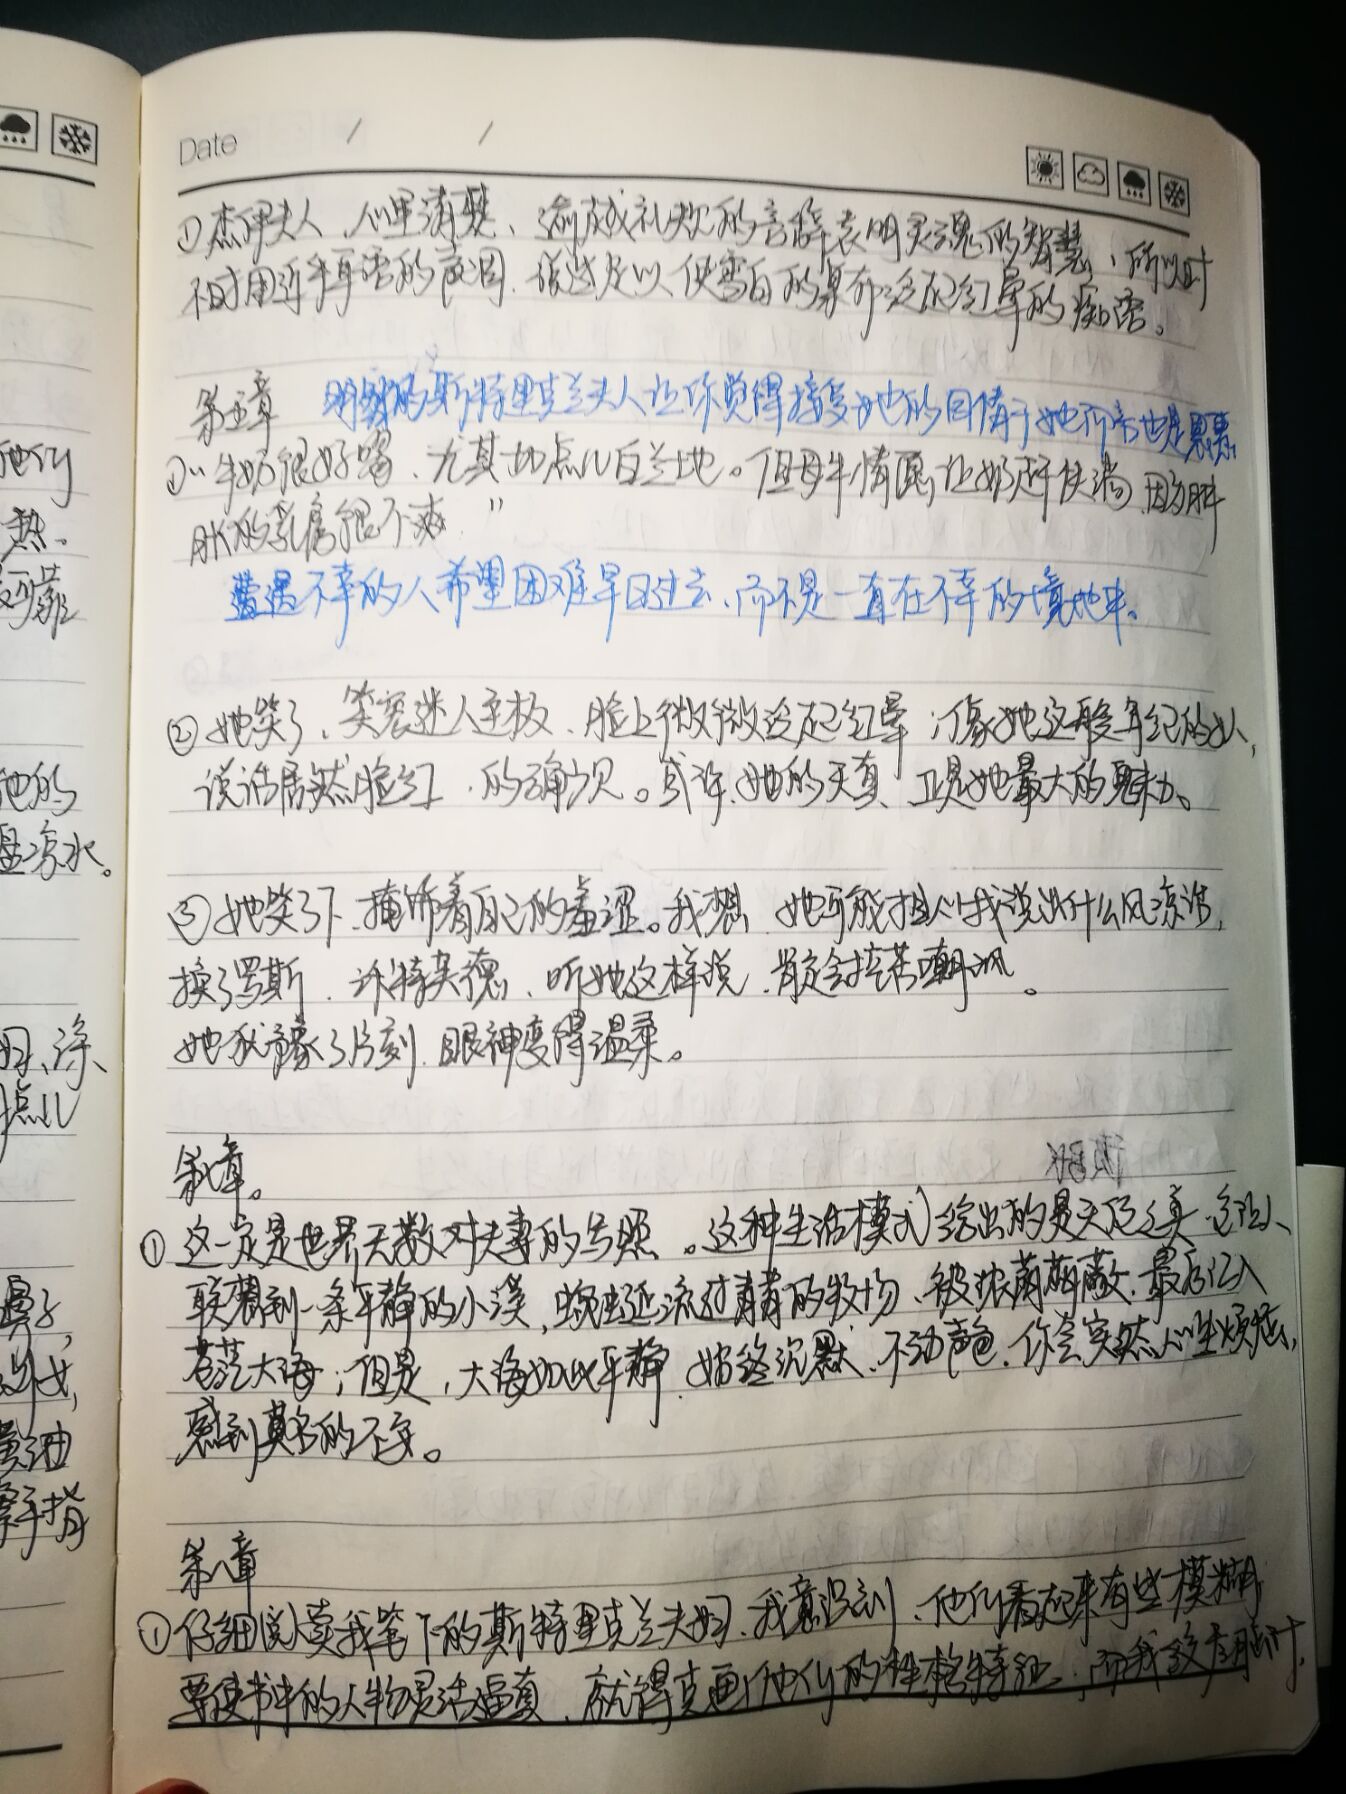 Date / /
①杰伊夫人,心里清楚,逾越礼教的言辞表明灵魂的智慧,所以时
不时用近乎耳语的声调,说些足以使雪白的桌布泛起红晕的痴语。
第五章 斯特里克兰夫人让你觉得接受她的同情于她而言也是恩惠
①“牛奶很好喝,尤其加点儿白兰地。但母牛情愿让奶赶快淌,因为肿
胀的乳房很不爽”
遭遇不幸的人希望困难早日过去,而不是一直在不幸的境地中。
②她笑了,笑容迷人至极,脸上微微泛起红晕;像她这般年纪的女人,
说话居然脸红,的确少见。或许,她的天真,正是她最大的魅力。
③她笑了下,掩饰着自己的羞涩。我想,她可能担心我说出什么风凉话,
换了罗斯,沃特芙德,听她这样说,肯定会挖苦嘲讽。
她犹豫了片刻,眼神变得温柔。
①这一定是世界无数对夫妻的写照。这种生活模式给出的是天伦之美,它让人
联想到一条平静的小溪,蜿蜒流过青青的牧场,被浓荫遮蔽,最后汇入
苍茫大海;但是,大海如此平静,始终沉默,不动声色,你会突然心生烦恼,
感到莫名的不安。
第八章
①仔细阅读我笔下的斯特里克兰夫妇,我意识到,他们看起来有些模糊
要使书中的人物灵活逼真,就得刻画他们的性格特征,而我
他们
热。
可靠
他的
盆凉水。
点儿
鼻子,
手指